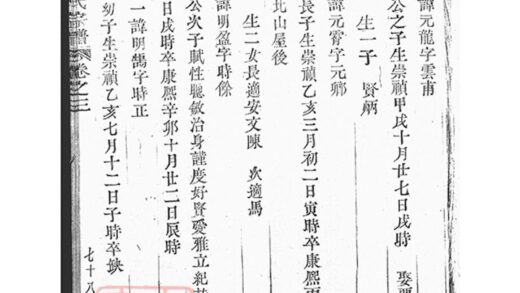 諱元龍字雲甫
公之子生崇禎甲戌十月廿七日戌時 娶
生一子 賢炳
諱元霄字元卿
長子生崇禎乙亥三月初二日寅時卒康熙
北山屋後
生二女長適安文陳 次適馬
諱明盈字時餘
公次子賦性聰敏治身謹度好賢愛雅立紀
日戌時卒康熙辛卯十月廿二日辰時
一諱明鵠字時正
幼子生崇禎乙亥七月十二日子時卒缺
氏宗譜 卷之三
七十八